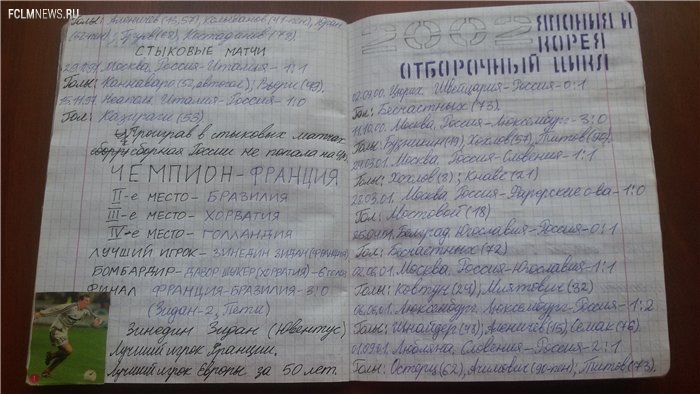 FCLMNEWS.RU
Голы: Аленичев
СТЫКОВЫЕ МАТЧИ
Москва, Россия-Италия-1:1
Голы: Каннаваро (52, автогол); Вьери (49).
15.11.97 Неаполь. Италия-Россия-1:0
Гол: Казираги (53)
Проиграв в стыковых матчах
сборная России не попала на
ЧЕМПИОН-ФРАНЦИЯ
II-е МЕСТО-БРАЗИЛИЯ
III-е МЕСТО-ХОРВАТИЯ
IV-е МЕСТО-ГОЛЛАНДИЯ
ЛУЧШИЙ ИГРОК-ЗИНЕДИН ЗИДАН (ФРАНЦИЯ)
БОМБАРДИР-ДАВОР ШУКЕР (ХОРВАТИЯ)-6
ФИНАЛ ФРАНЦИЯ-БРАЗИЛИЯ-3:0
(Зидан-2, Пети)
Зинедин Зидан (Ювентус)
Лучший игрок Франции.
Лучший игрок Европы за 50 лет.
2002 ЯПОНИЯ И
КОРЕЯ
ОТБОРОЧНЫЙ ЦИКЛ
02.09.00. Цюрих. Швейцария-Россия-0:1
Гол: Бесчастных (73).
11.10.00. Москва, Россия-Люксембург-3:0
Голы: Бузникин (19), Хохлов (57), Титов (90).
24.03.01. Москва. Россия-Словения-1:1
Голы: Хохлов (8); Кнавс (21)
28.03.01. Москва. Россия-Фарерские о-ва-1:0
Гол: Мостовой (18)
25.04.01. Белград Югославия-Россия-0:1
Гол: Бесчастных (72)
02.06.01. Москва. Россия-Югославия-1:1
Голы: Ковтун (24), Миятович (32)
06.06.01. Люксембург. Люксембург-Россия-1:2
Голы: Шнайдер (48), Аленичев (15), Семак (76)
01.09.01. Любляна. Словения-Россия-2:1
Голы: Остерц (62), Ачимович (90-пен); Титов (73).